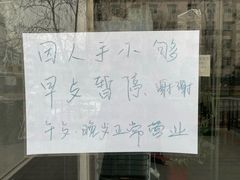 因人手小够
早点暂停.谢谢
午点.晚点正常营业